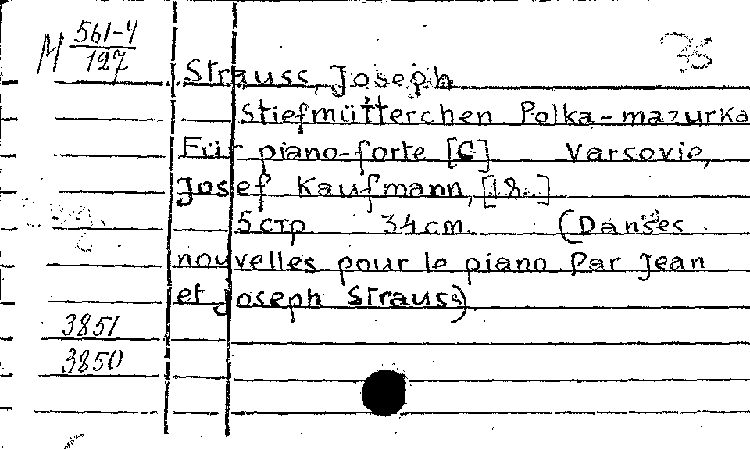 M 561-4/127
Strauss, Joseph
Stiefmütterchen Polka-mazurka
Für piano-forte [C] Varsovie,
Josef Kaufmann, [18..]
5 стр. 34 cm. (Danses
nouvelles pour le piano Par Jean
et Joseph Strauss)
3851
3850